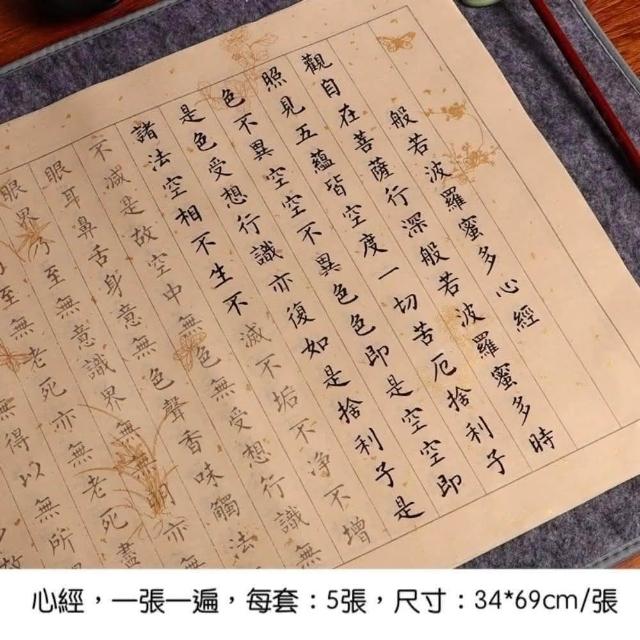 般若波羅蜜多心經
觀自在菩薩行深般若波羅蜜多時
照見五蘊皆空度一切苦厄捨利子
色不異空空不異色色即是空空即
是色受想行識亦復如是捨利子是
諸法空相不生不滅不垢不淨不增
不減是故空中無色無受想行識無
眼耳鼻舌身意無色聲香味觸法
眼界乃至無意識界無無明亦
至無老死亦無老死盡
得以無所
故
心經，一張一遍，每套：5張，尺寸：34*69cm/張